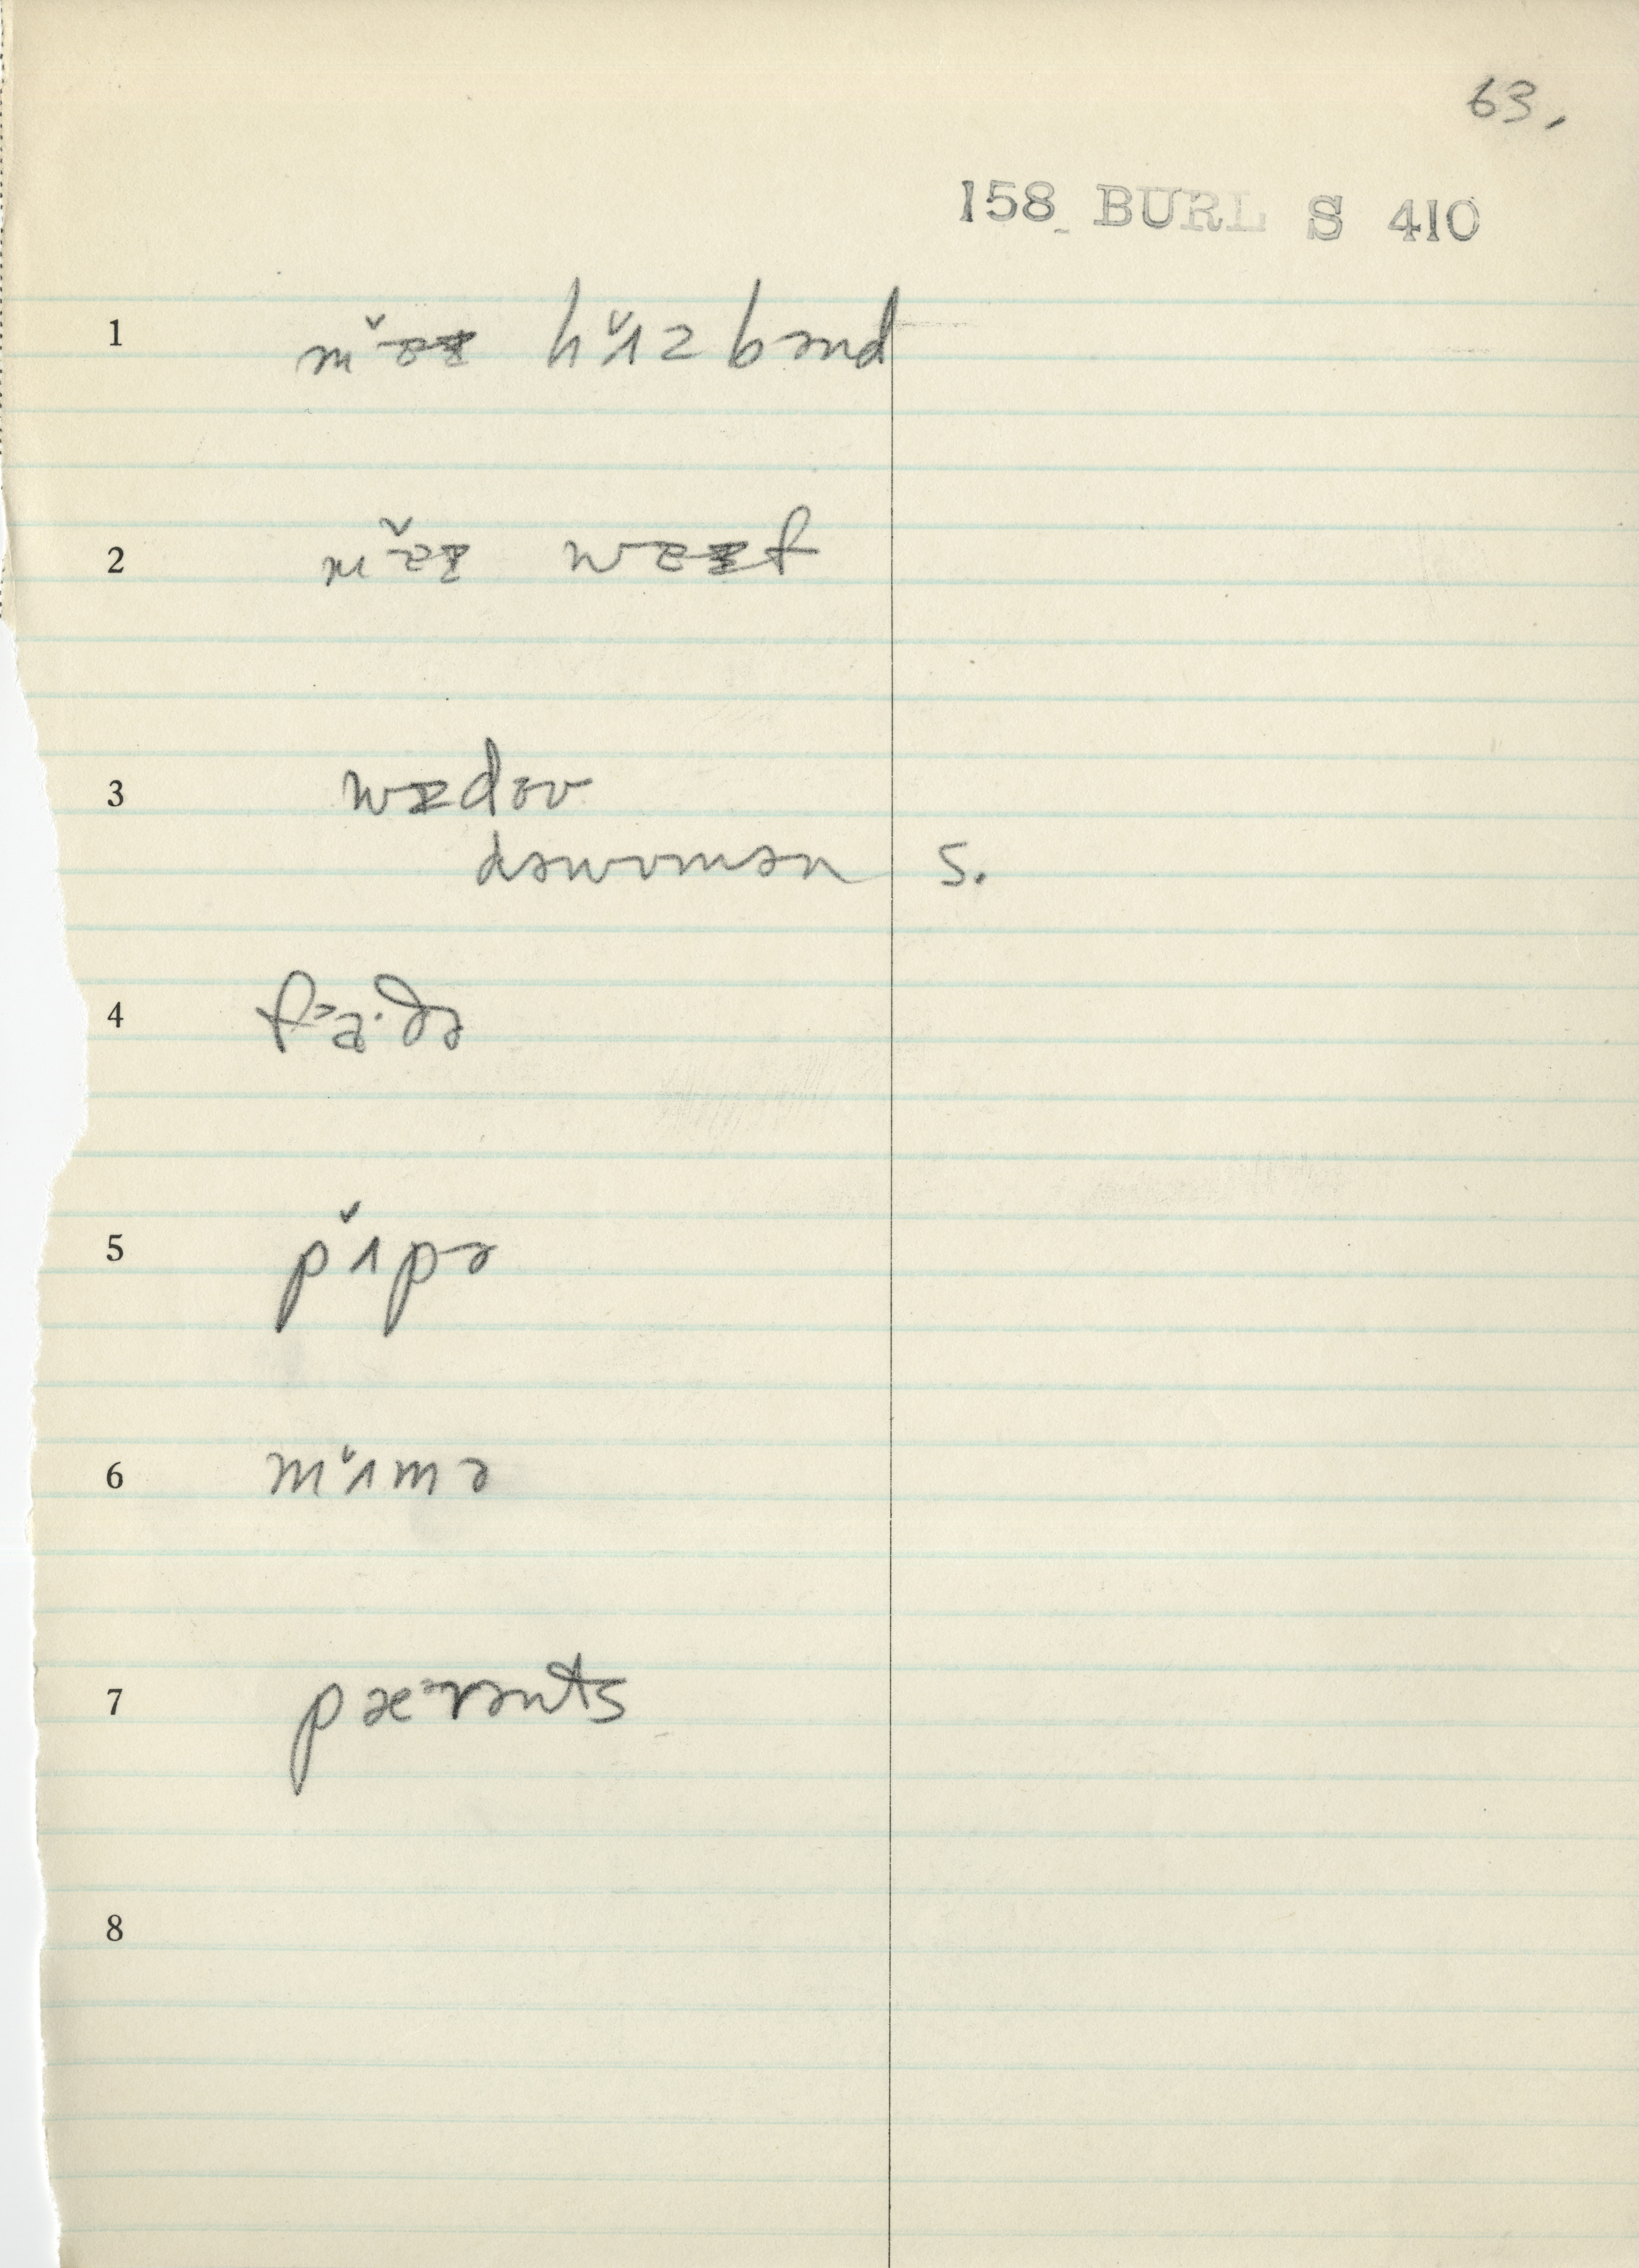 63.
158 BURL S 410
1 mɐᵻ hʌzbənd
2 mɐᵻ wɐᵻf
3 wᵻdəʊ
dəwʊmən s.
4 fa·ðə
5 pʌpə
6 mʌmə
7 pærənts
8